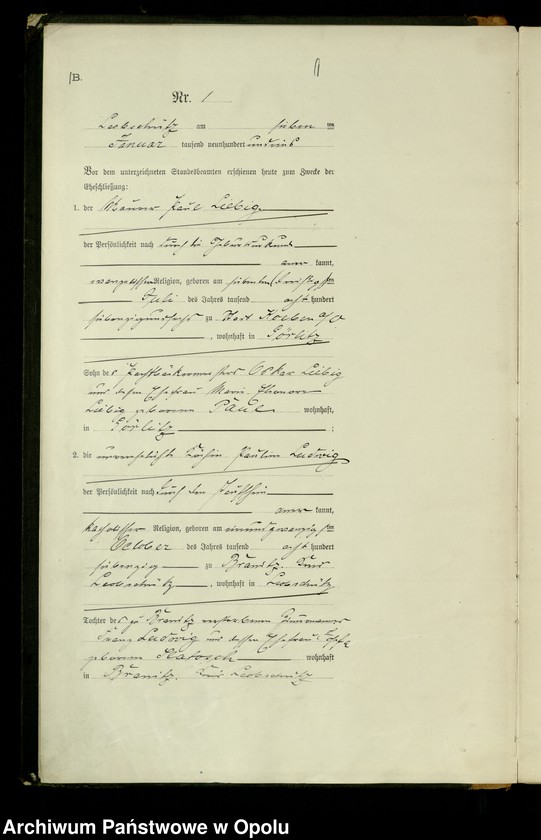 B.
Nr. 1
Leobschütz am sieben ten
Januar tausend neunhundert und eins
Vor dem unterzeichneten Standesbeamten erschienen heute zum Zwecke der
Eheschließung:
1. der Paul Liebig
der Persönlichkeit nach durch die Geburtsurkunde
aner kannt,
evangelischer Religion, geboren am ten
Juli des Jahres tausend acht hundert
siebenzig und sechs zu
, wohnhaft in Görlitz
Sohn des Oskar Liebig
und dessen Ehefrau Marie Eleonore
Liebig geborenen Paul wohnhaft,
in Görlitz ;
2. die unverehelichte Köchin Pauline Ludwig
der Persönlichkeit nach durch den Taufschein
aner kannt,
katholischer Religion, geboren am einundzwanzigsten
October des Jahres tausend acht hundert
siebenzig zu Branitz, Kreis
Leobschütz , wohnhaft in Leobschütz
Tochter des zu Branitz verstorbenen
Franz Ludwig und dessen Ehefrau
geborenen wohnhaft
in Branitz, Kreis Leobschütz
Archiwum Państwowe w Opolu